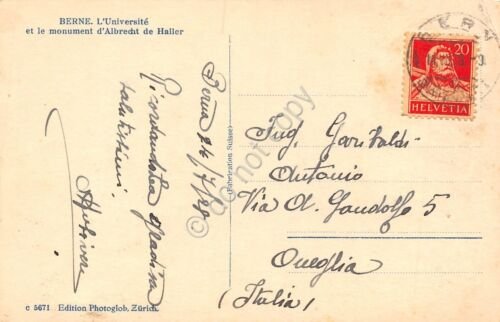 BERNE. L'Université
et le monument d'Albrecht de Haller
Berna 24/7/20
Ricordandola
salutissimi.
c 5671 Edition Photoglob, Zürich.
(Fabrication Suisse)
20
HELVETIA
BERN
Ing. Garibaldi
Antonio
Via A. Gandolfo 5
Oneglia
(Italia)
do not copy